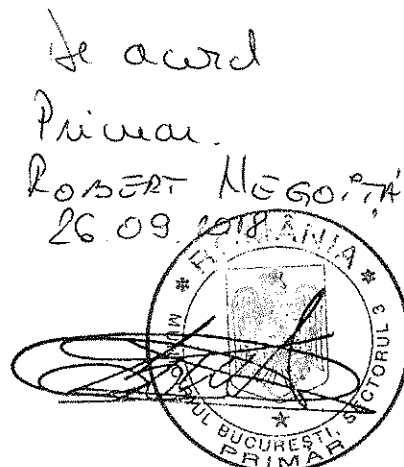 De acord
Primar.
ROBERT NEGOIȚĂ
26.09.2018
* ROMÂNIA *
MUNICIPIUL BUCUREȘTI, SECTORUL 3
PRIMAR